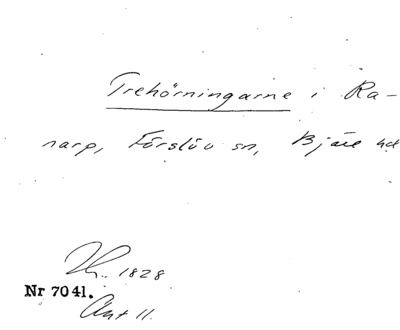 Trehörningarne i Ra-
narp, Förslöv sn, Bjäre hd
1828
Nr 7041.
Akt 11.